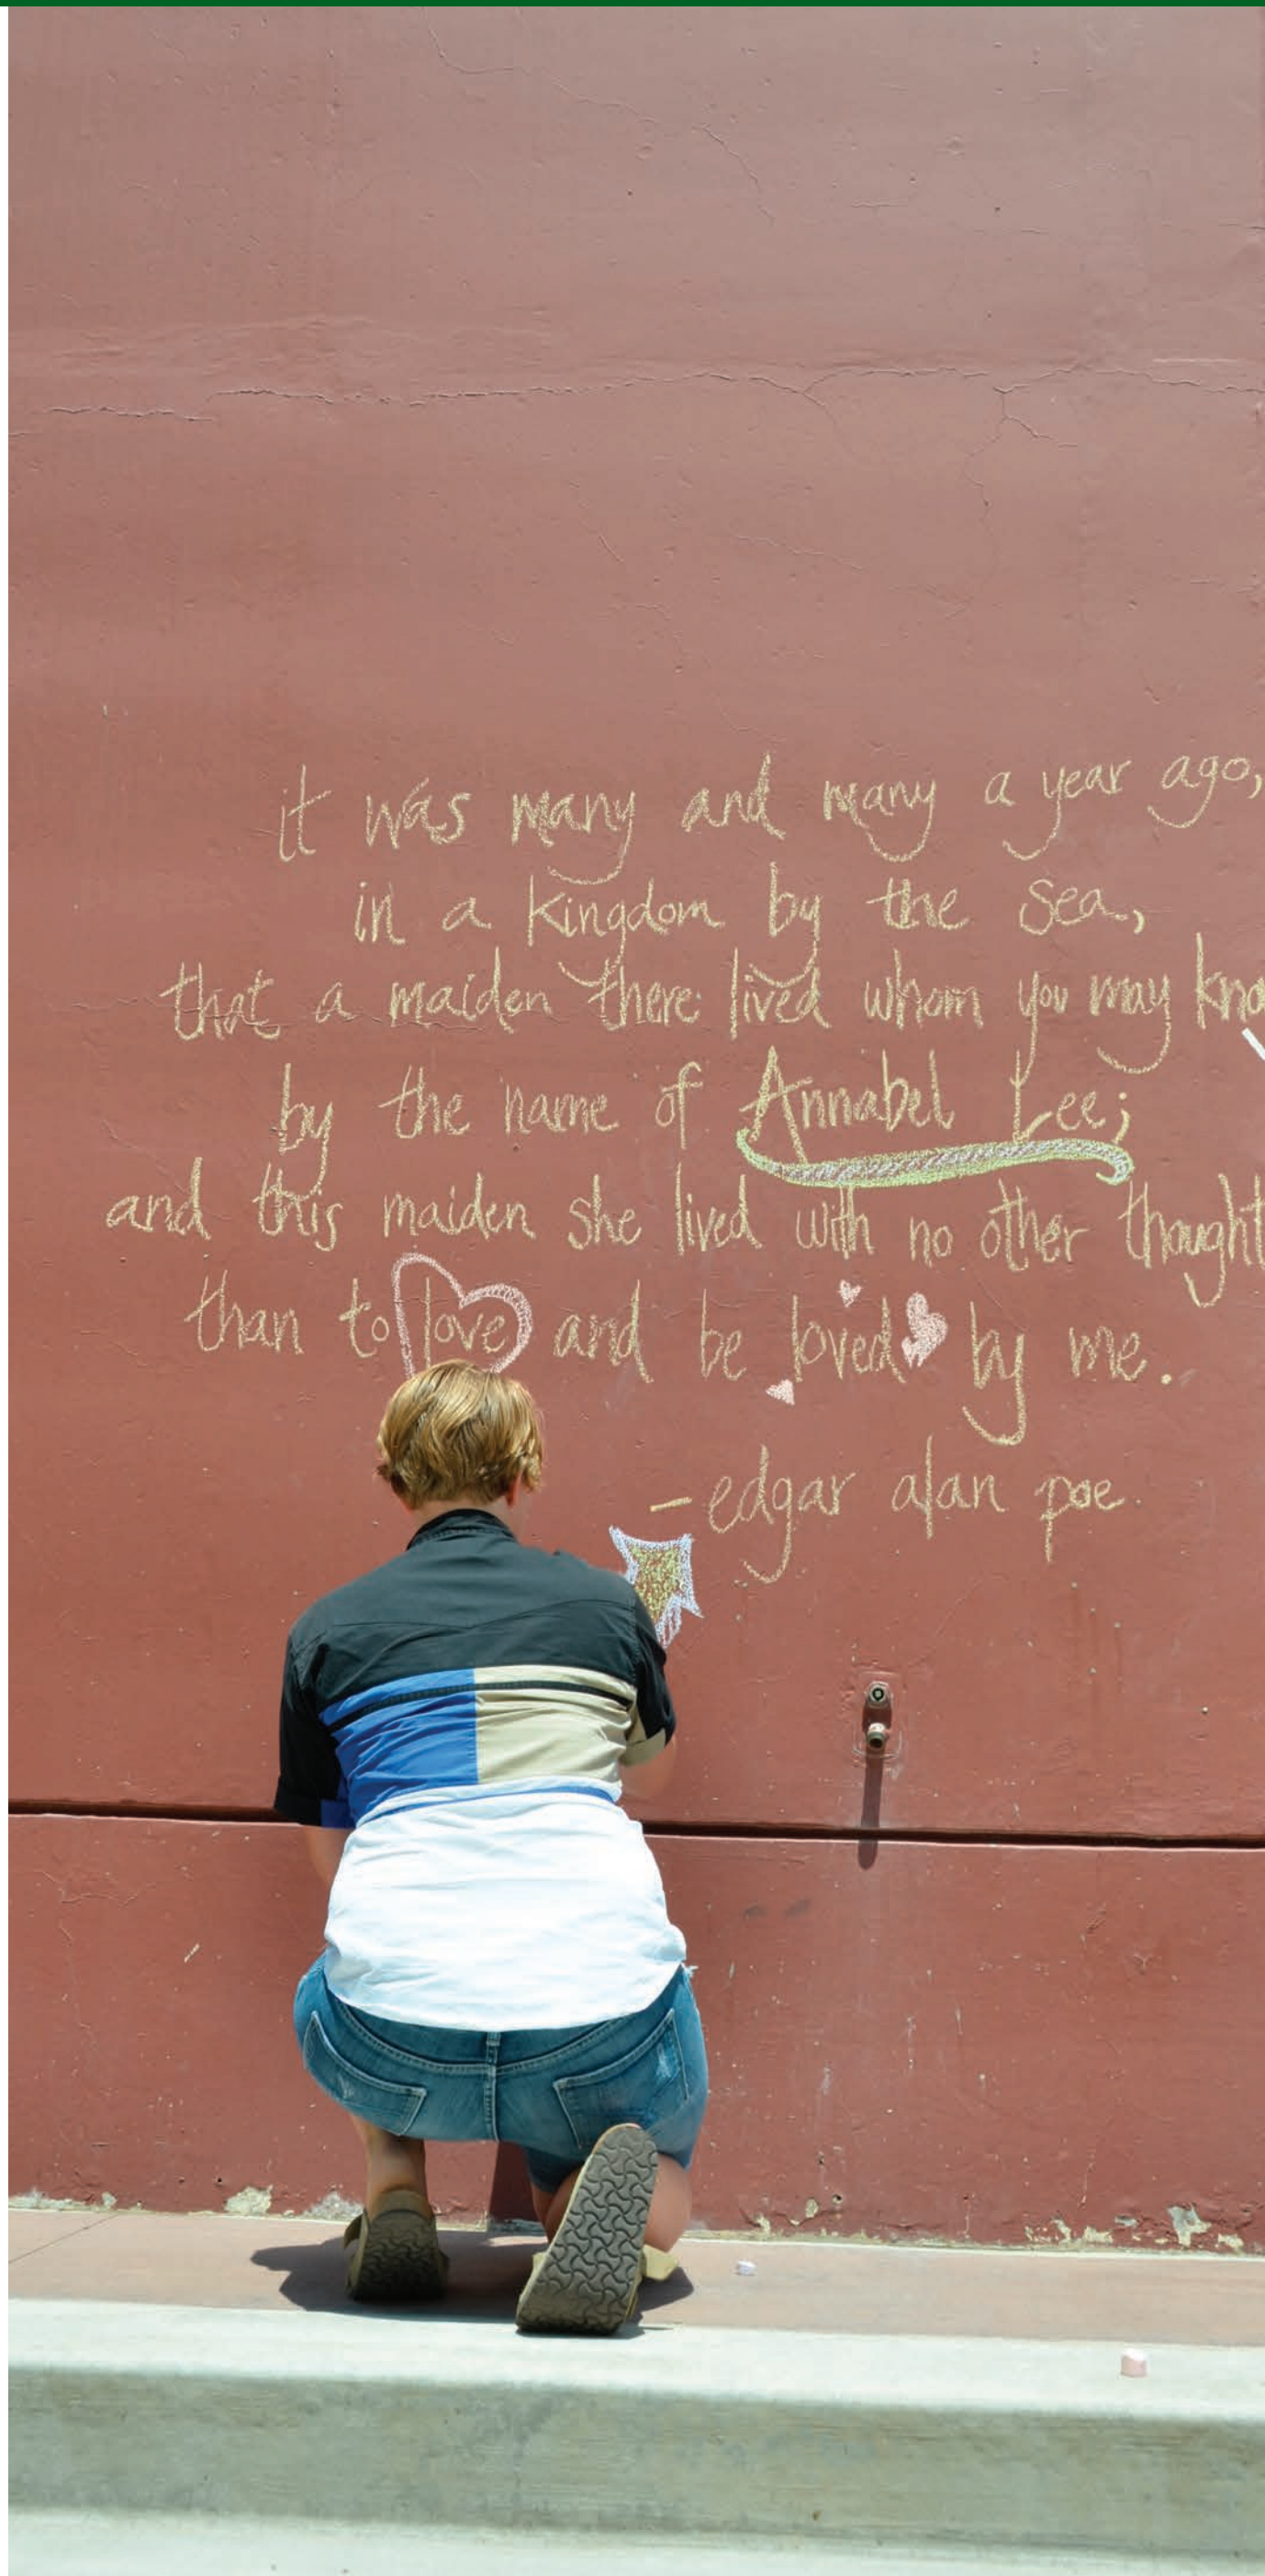 it was many and many a year ago,
in a kingdom by the sea,
that a maiden there lived whom you may kno
by the name of Annabel Lee;
and this maiden she lived with no other thought
than to love and be loved by me.
- edgar alan poe